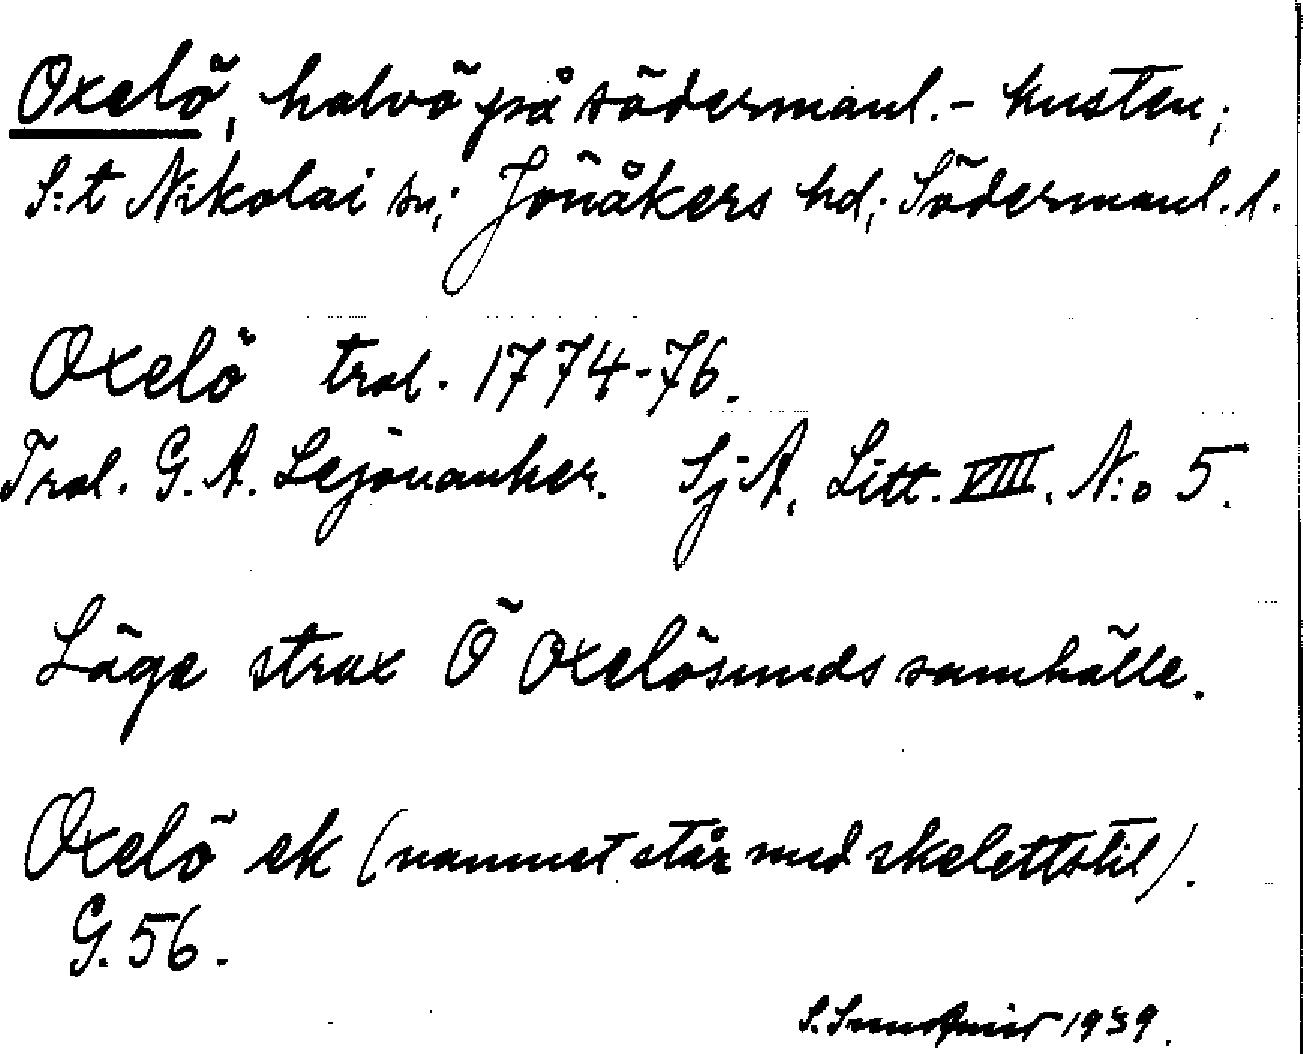 Oxelö, halvö på södermanl.-kusten;
S:t Nikolai sn; Jönåkers hd; Södermanl. l.
Oxelö trol. 1774-76.
Trol. G. A. Lejonanker. SjA, Litt. VIII. N:o 5.
Läge strax Ö Oxelösunds samhälle.
Oxelö ek (namnet står med skelettstil).
G. 56.
S. Sundqvist 1939.